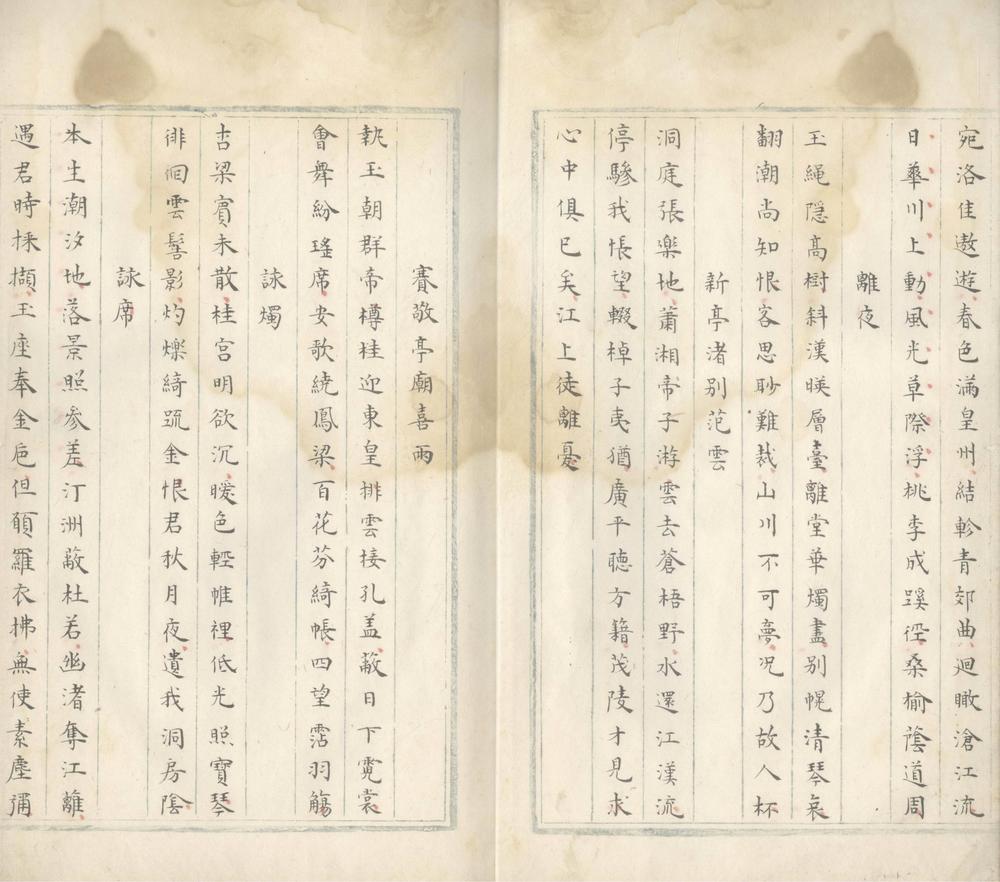 宛洛佳遨遊春色滿皇州結軫青郊曲迴瞰滄江流
日華川上動風光草際浮桃李成蹊徑桑榆蔭道周
離夜
玉繩隱高樹斜漢暎層臺離堂華燭盡別幌清琴哀
翻潮尚知恨客思眇難裁山川不可夢况乃故人杯
新亭渚別范雲
洞庭張樂地蕭湘帝子游雲去蒼梧野水還江漢流
停驂我悵望輟棹子夷猶廣平聽方籍茂陵才見求
心中俱已矣江上徒離憂
賽敬亭廟喜雨
執玉朝群帝樽桂迎東皇排雲接孔盖蔽日下霓裳
會舞紛瑤席安歌繞鳳梁百花芬綺帳四望霑羽觴
詠燭
杏梁賓未散桂宮明欲沉曖色輕帷裡低光照寶琴
徘徊雲髻影灼爍綺疏金恨君秋月夜遺我洞房陰
詠席
本生潮汐地落景照參差汀洲蔽杜若幽渚奪江離
遇君時採擷玉座奉金巵但願羅衣拂無使素塵彌